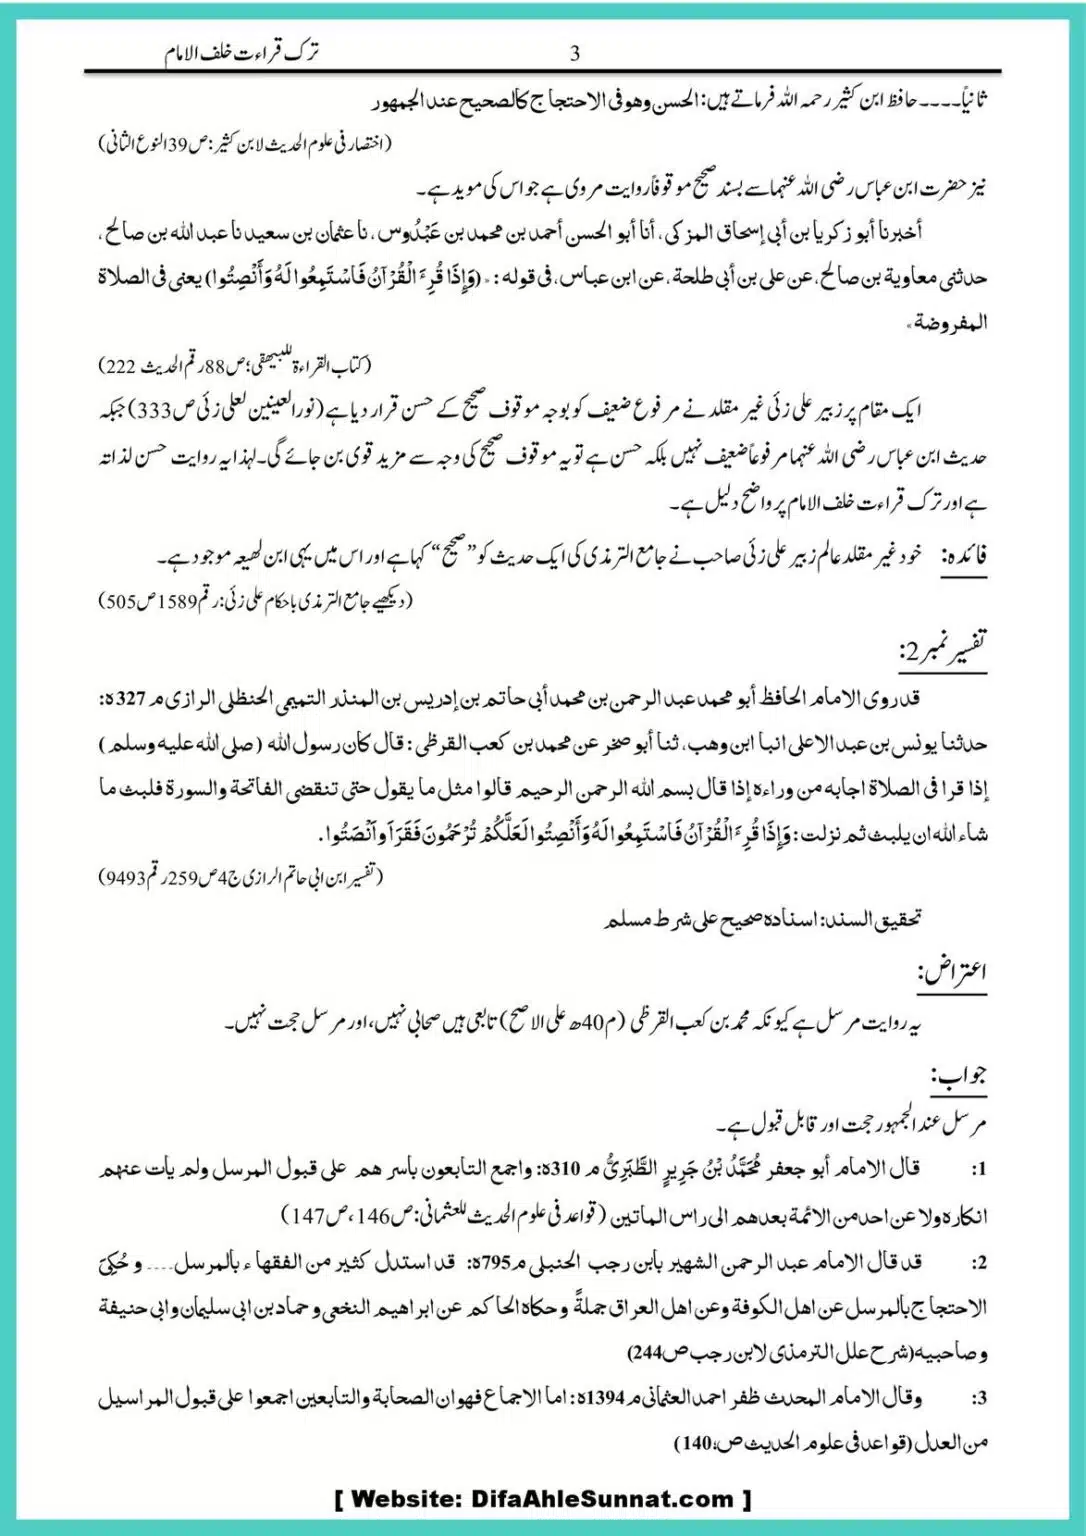 ترک قراءت خلف الامام 3
ثانیاً۔۔۔۔ حافظ ابن کثیر رحمہ اللہ فرماتے ہیں: الحسن وهو فی الاحتجاج کالصحیح عند الجمهور
(اختصار فی علوم الحدیث لابن کثیر: ص39 النوع الثانی)
نیز حضرت ابن عباس رضی اللہ عنہما سے بسند صحیح موقوفاً روایت مروی ہے جو اس کی موید ہے۔
أخبرنا أبو زکریا بن أبی إسحاق المزکی، أنا أبو الحسن أحمد بن محمد بن عَبْدُوس، نا عثمان بن سعید نا عبد الله بن صالح،
حدثنی معاویة بن صالح، عن علی بن أبی طلحة، عن ابن عباس، فی قوله: «(وَإِذَا قُرِءَ الْقُرْآنُ فَاسْتَمِعُوا لَهُ وَأَنْصِتُوا) یعنی فی الصلاة
المفروضة»
(کتاب القراءۃ للبیھقی؛ ص88 رقم الحدیث 222)
ایک مقام پر زبیر علی زئی غیر مقلد نے مرفوع ضعیف کو بوجہ موقوف صحیح کے حسن قرار دیا ہے (نور العینین لعلی زئی ص333) جبکہ
حدیث ابن عباس رضی اللہ عنہما مرفوعاً ضعیف نہیں بلکہ حسن ہے تو یہ موقوف صحیح کی وجہ سے مزید قوی بن جائے گی۔ لہذا یہ روایت حسن لذاتہ
ہے اور ترک قراءت خلف الامام پر واضح دلیل ہے۔
فائدہ: خود غیر مقلد عالم زبیر علی زئی صاحب نے جامع الترمذی کی ایک حدیث کو ”صحیح“ کہا ہے اور اس میں یہی ابن لھیعہ موجود ہے۔
(دیکھیے جامع الترمذی باحکام علی زئی: رقم1589 ص505)
تفسیر نمبر2:
قد روی الامام الحافظ أبو محمد عبد الرحمن بن محمد أبی حاتم بن إدریس بن المنذر التمیمی الحنظلی الرازی م327ه:
حدثنا یونس بن عبد الاعلی انبا ابن وهب، ثنا أبو صخر عن محمد بن کعب القرظی: قال کان رسول الله (صلی الله علیه وسلم)
إذا قرا فی الصلاة اجابه من وراءه إذا قال بسم الله الرحمن الرحیم قالوا مثل ما یقول حتی تنقضی الفاتحة والسورة فلبث ما
شاء الله ان یلبث ثم نزلت: وَإِذَا قُرِءَ الْقُرْآنُ فَاسْتَمِعُوا لَهُ وَأَنْصِتُوا لَعَلَّكُمْ تُرْحَمُونَ فَقَرَأَ وأنْصَتُوا.
(تفسیر ابن ابی حاتم الرازی ج4 ص259 رقم9493)
تحقیق السند: اسناده صحیح علی شرط مسلم
اعتراض:
یہ روایت مرسل ہے کیونکہ محمد بن کعب القرظی (م40ھ علی الاصح) تابعی ہیں صحابی نہیں، اور مرسل حجت نہیں۔
جواب:
مرسل عند الجمہور حجت اور قابل قبول ہے۔
1: قال الامام أبو جعفر مُحَمَّدُ بْنُ جَرِیرٍ الطَّبَرِیُّ م310ه: واجمع التابعون باسرهم علی قبول المرسل ولم یات عنهم
انکاره ولا عن احد من الائمة بعدهم الی راس الماتین (قواعد فی علوم الحدیث للعثمانی: ص146، ص147)
2: قد قال الامام عبد الرحمن الشهیر بابن رجب الحنبلی م795ه: قد استدل کثیر من الفقهاء بالمرسل.... و حُکِیَ
الاحتجاج بالمرسل عن اهل الکوفة وعن اهل العراق جملةً وحکاه الحاکم عن ابراهیم النخعی وحماد بن ابی سلیمان وابی حنیفة
وصاحبیه (شرح علل الترمذی لابن رجب ص244)
3: وقال الامام المحدث ظفر احمد العثمانی م1394ه: اما الاجماع فهو ان الصحابة والتابعین اجمعوا علی قبول المراسیل
من العدل (قواعد فی علوم الحدیث ص؛140)
[ Website: DifaAhleSunnat.com ]